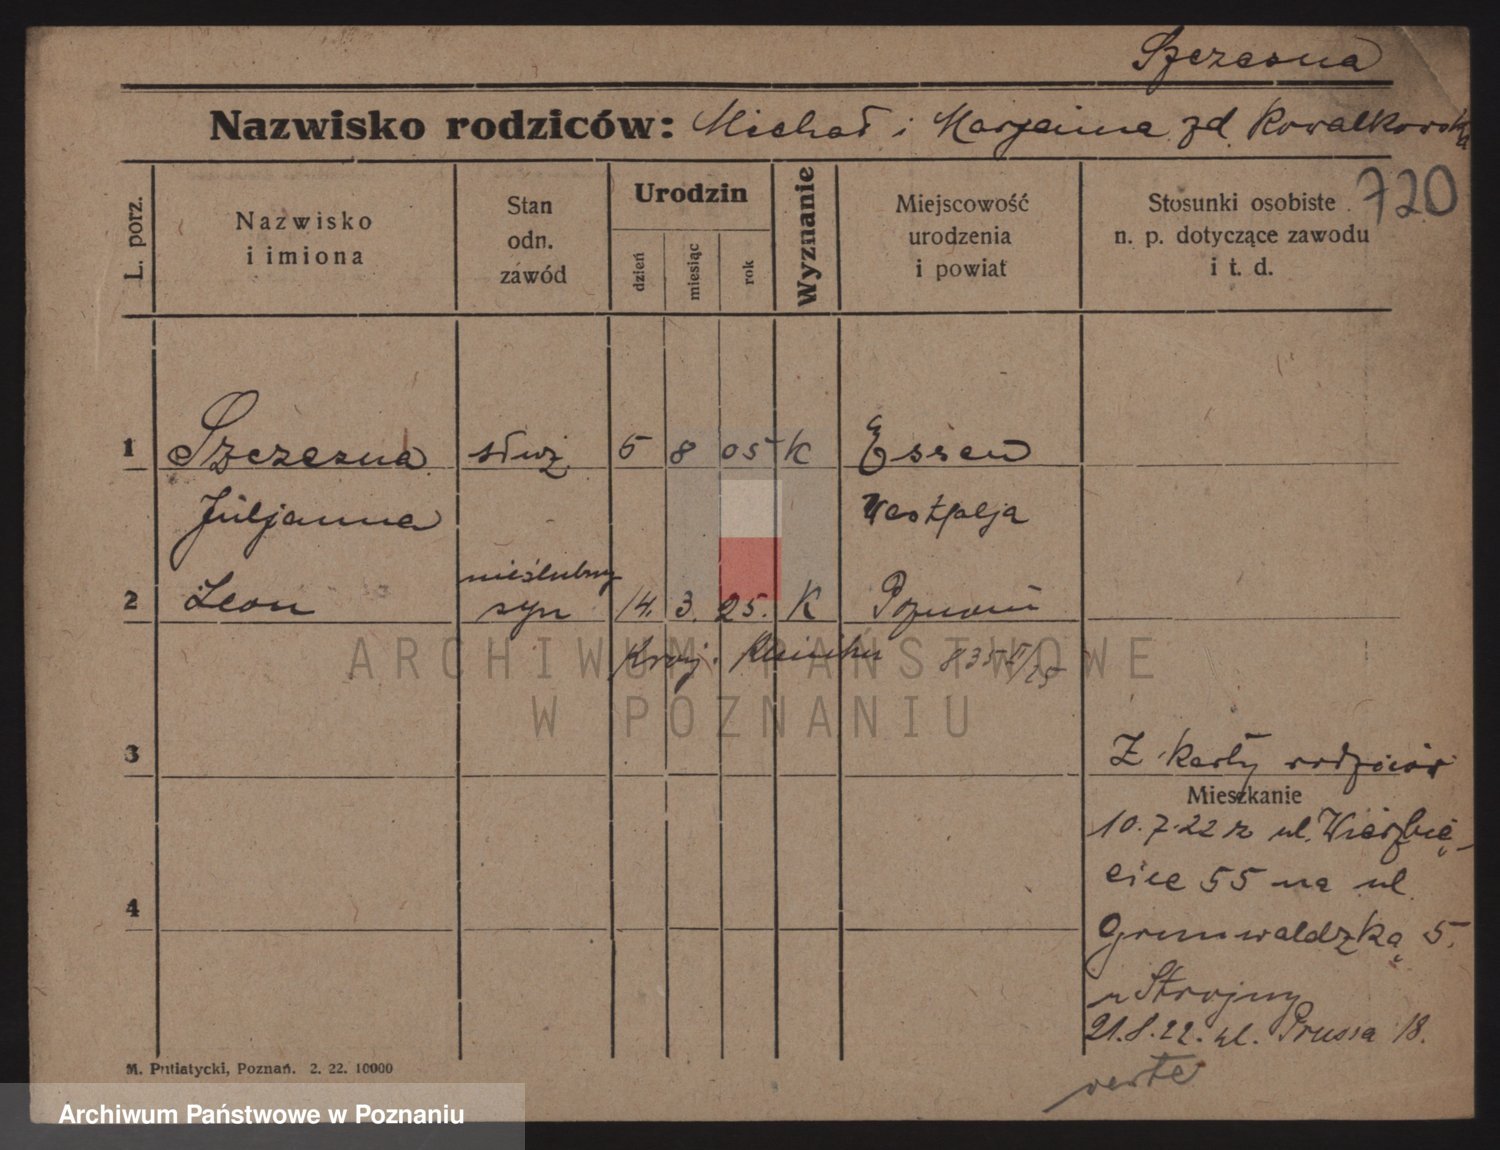 Szczesna
Nazwisko rodziców: Michał i Marjanna zd. Kowalkowska
720
L. porz.
Nazwisko
i imiona
Stan
odn.
zawód
Urodzin
dzień
miesiąc
rok
Wyznanie
Miejscowość
urodzenia
i powiat
Stosunki osobiste
n. p. dotyczące zawodu
i t. d.
1 Szczesna służ. 5 8 05 K Essen
Juljanna Westfalja
nieślubny
2 Leon syn 14. 3. 25. K Poznań
Kraj. Klinika 835 II/25
3
Z karty rodziców
Mieszkanie
10.7.22 z ul. Wierzbię-
cice 55 na ul
4
Grunwaldzką 5.
u Strojny
21.8.22. ul. Prussa 18.
verte
M. Putiatycki, Poznań. 2. 22. 10000
ARCHIWUM PAŃSTWOWE
W POZNANIU
Archiwum Państwowe w Poznaniu